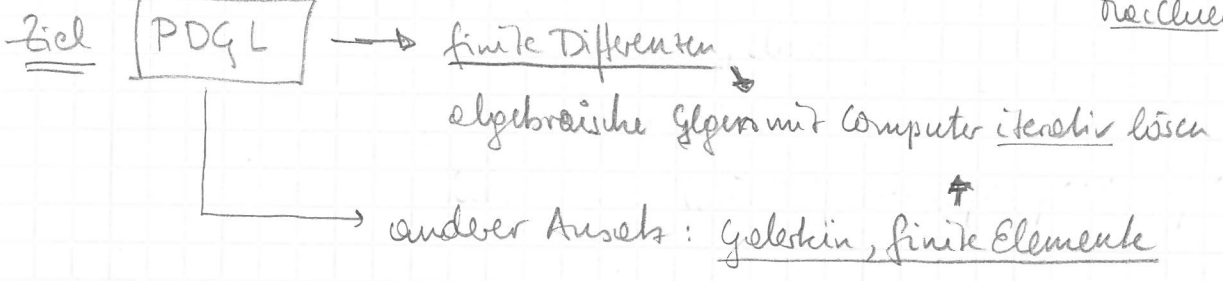 Ziel PDGL → finite Differenzen
algebraische Glgen mit Computer iterativ lösen
anderer Ansatz: Galerkin, finite Elemente